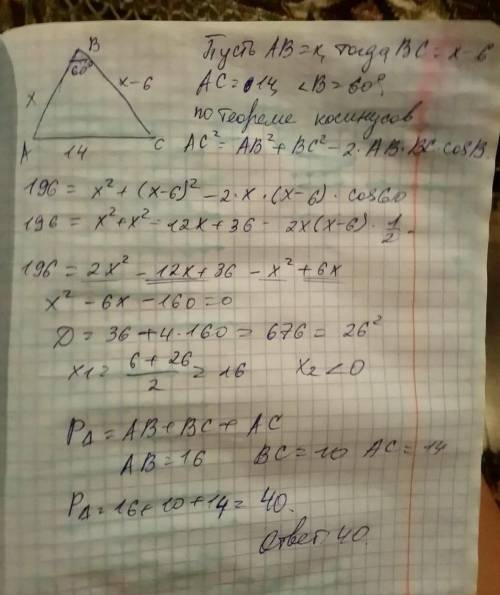 B
60°
x
x-6
A
14
C
Пусть AB=x, тогда BC=x-6
AC=14, <B=60°,
по теореме косинусов
AC²=AB²+BC²-2·AB·BC·cosB.
196=x²+(x-6)²-2·x·(x-6)·cos60
196=x²+x²-12x+36-2x(x-6)·1/2.
196=2x²-12x+36-x²+6x
x²-6x-160=0
D=36+4·160=676=26²
x1=(6+26)/2=16 x2<0
P△=AB+BC+AC
AB=16 BC=10 AC=14
P△=16+10+14=40.
Ответ 40.